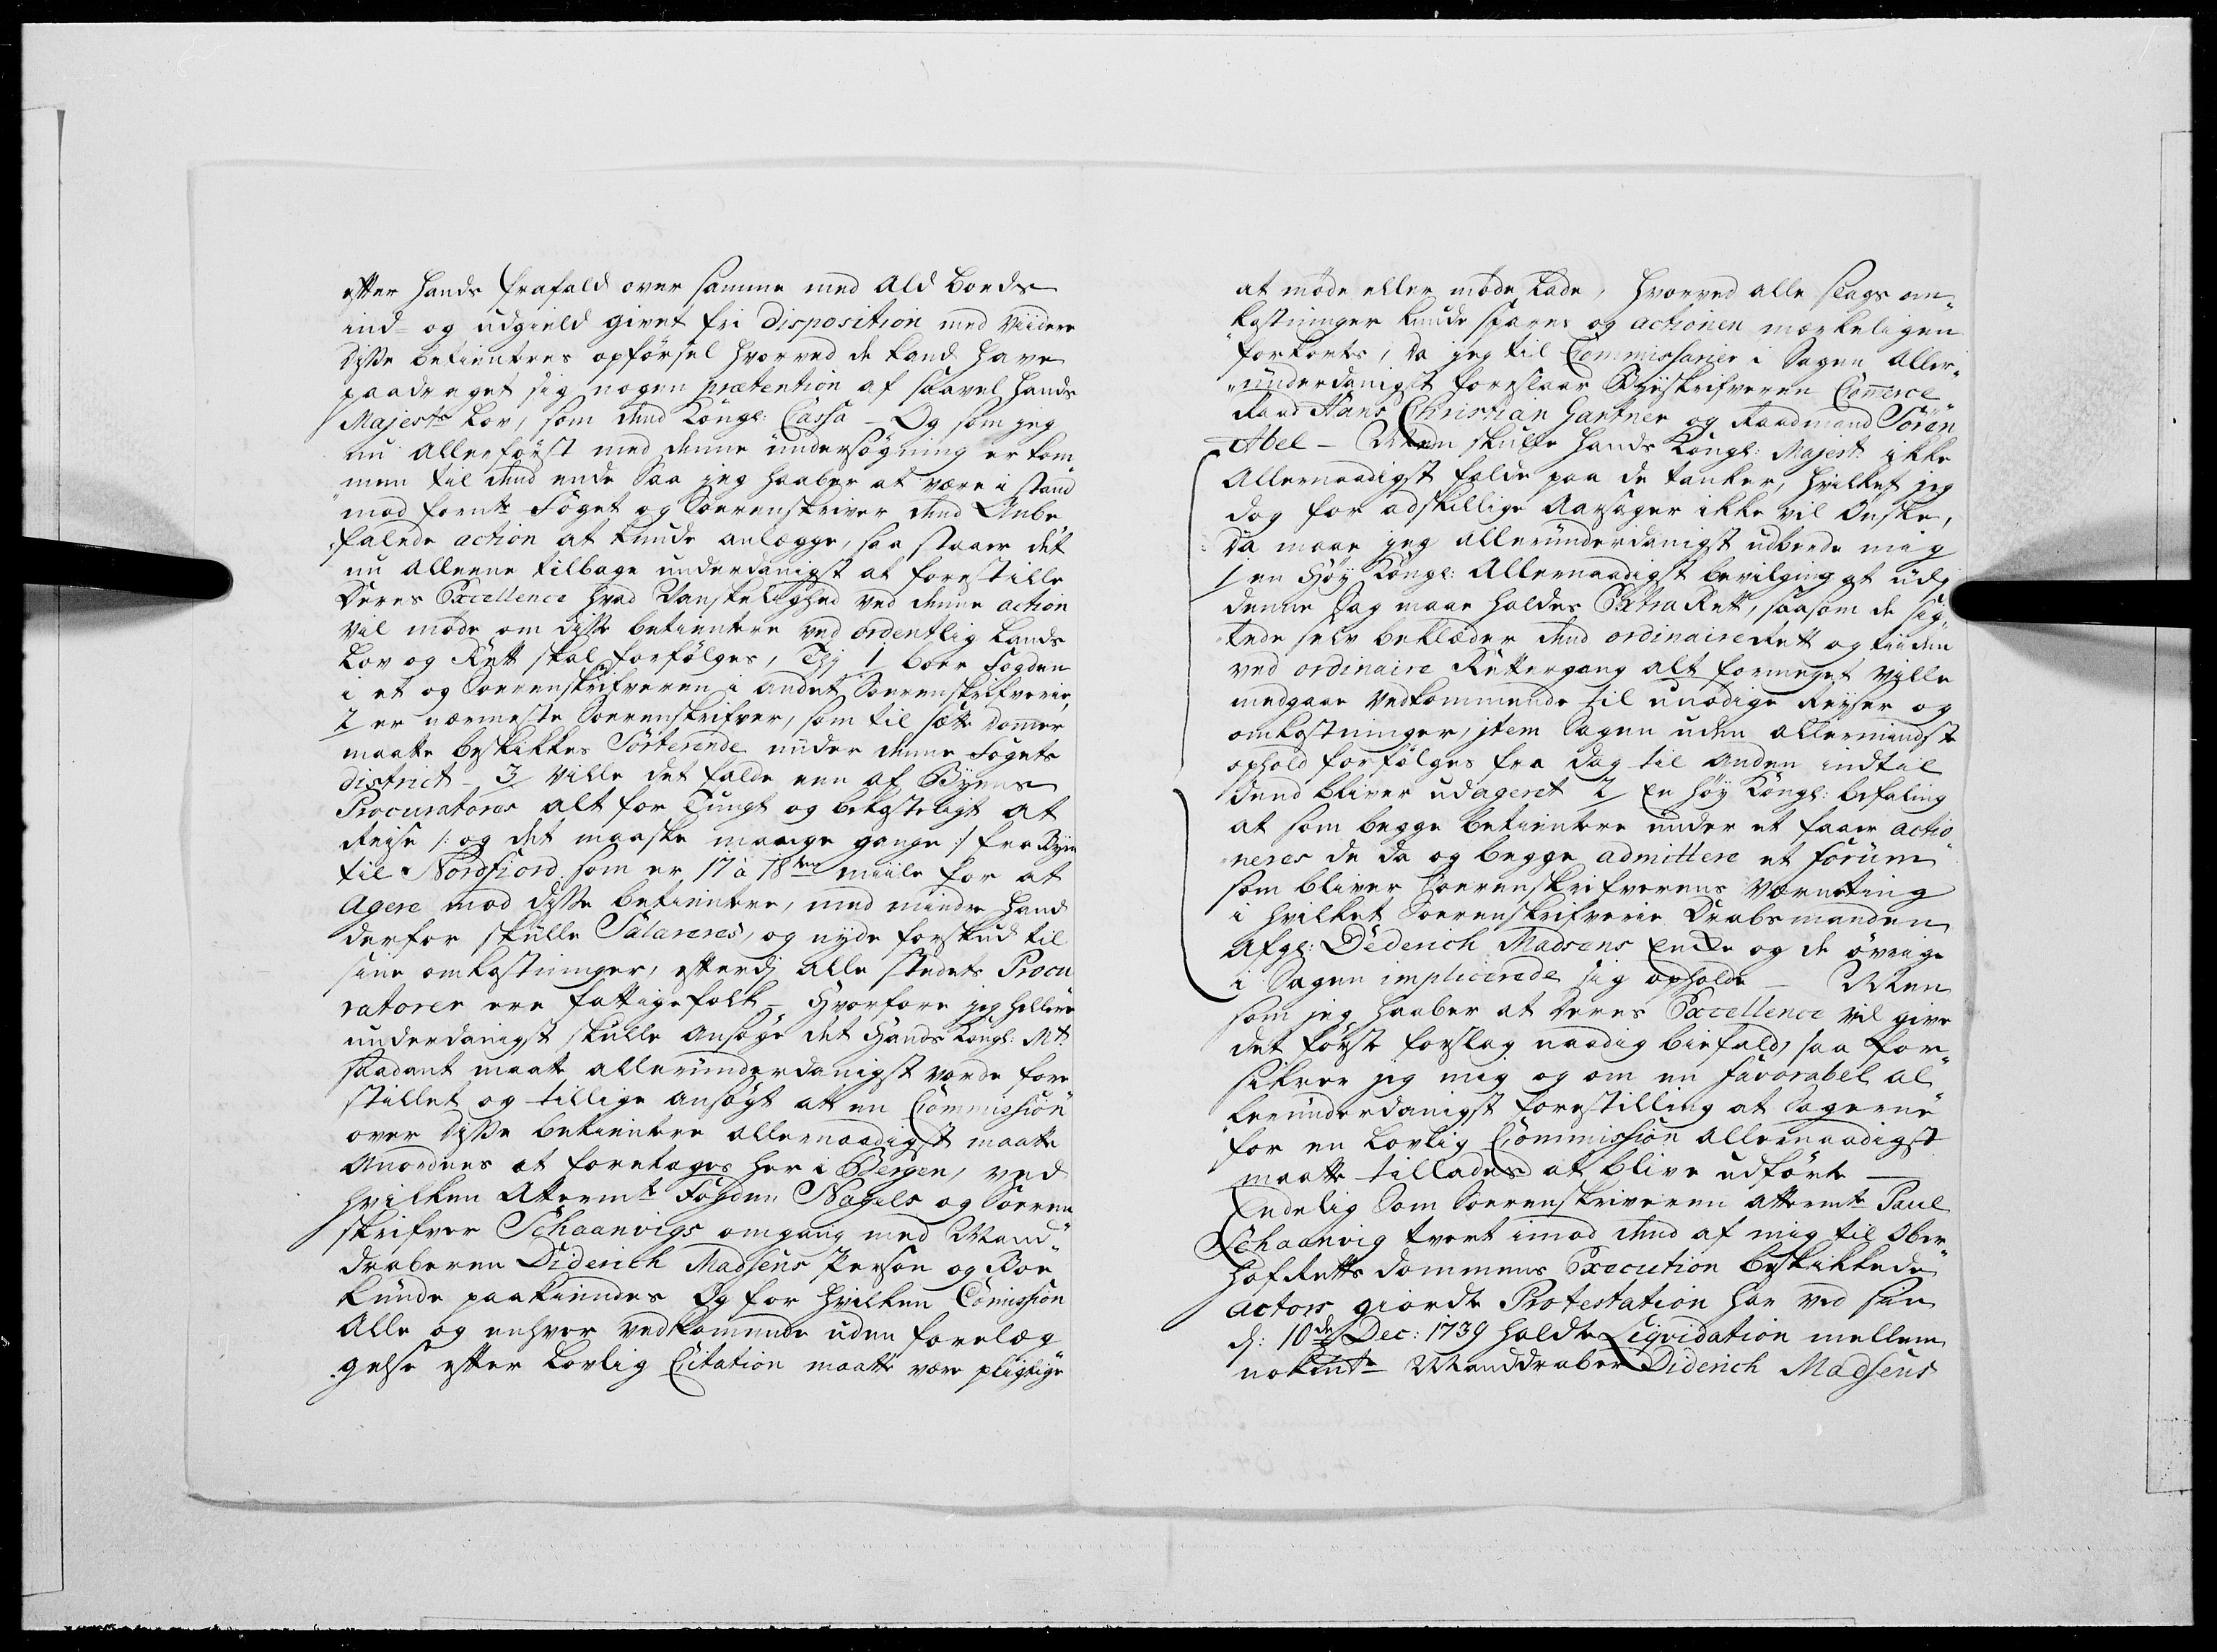 efter hands frafald over samme med ald boeds
ind- og udgield givet fri disposition med viidere
disse betienteres opførsel hvorved de kand have
paadraget sig nogen prætention af saavel hands
Majest:ts Lov, som dend Kongl: Cassa - Og som jeg
nu allerførst med denne undersøgning er kom„
„men til dend ende saa jeg haaber at være i stand
mod fornte Foget og Sorenskriver dend Anbe„
„falede action at kunde anlægge, saa staaer det
nu alleene tilbage underdanigst at forestille
Deres Excellence hvad Vanskelighed ved denne action
vil møde om disse betientere ved ordentlig Lands
Lov og Rett skal forfølges, Thj 1 boer Fogden
i et og Sorenskrifveren i andet Sorenskrifverie,
2 er nærmeste Sorenskrifver, som til sætte dommer
maatte beskikkes Sorterende under denne Fogets
district - 3/ Ville det falde een af Byens
Procuratores alt for Tungt og bekosteligt at
Reise /: og det maaske mange gange :/ fra Byen
til Nordfiord som er 17 à 18ten miile for at
Agere mod disse betientere, med mindre hand
derfor skulle Salareres, og nyde forskud til
sine omkostninger, efterdj alle stedets Procu„
ratorer ere fattige folk - Hvorfore jeg hellere
underdanigst skulle ansøge det Hands Kongl: Mt
saadant maatte allerunderdanigst vorde fore„
stillet og tillige ansøgt at en Commission
over disse betientere allernaadigst maatte
Anordnes at foretages her i Bergen, ved
hvilken Attermte Fogden Nagels og Soren„
skrifver Schaanvigs omgang med Mand„
draberen Diderich Madsens Person og Boe
kunde paakiendes Og for hvilken Comission
Alle og enhver vedkommende uden forelæg„
„gelse efter Lovlig Citation maatte være pligtige
at møde eller møde Lade, hvorved alle slags om„
„kostninger kunde spares og actionen mærkeligen
forkortes, da jeg til Commissarier i Sagen Aller„
„underdanigst foreslaar Byskrifveren Comerce
Raad Hans Christian Gartner og Raadmand Søren
Abel - Men skulle Hands Kongl: Majest: ikke
Allernaadigst falde paa de tanker, hvilket jeg
dog for adskillige Aarsager ikke vil Ønske,
Da maae jeg allerunderdanigst udbede mig
1/ en Høy Kongl: Allernaadigst bevilging at udj
denne Sag maae holdes Extra Rett, saasom de sig„
„tede selv beklæder dend ordinaire Rett og tiiden
ved ordinaire Rettergang alt formeget ville
medgaae vedkommende til unødige Reyser og
omkostninger, item Sagen uden allermindste
ophold forfølges fra dag til anden indtil
dend bliver udageret 2/ En høy Kongl: befaling
at som begge betientere under et faaer actio„
„neres de da og begge admittere et forum
som bliver Sorenskrifverens værneting
i hvilket Sorenskrifverie Drabsmanden
Afgl: Dederich Madsens Encke og de øvrige
i Sagen implicerede sig opholde - Men
som jeg haaber at Deres Excellence vil give
det første forslag naadig biefald, saa for„
sikrer jeg mig og om en favorabel al„
„lerunderdanigst forestilling at Sagerne
for en Lovlig Commission allernaadigst
maatte tillades at blive udførte —
Endelig Som Sorenskriveren attermte Paul
Schaanvig tvert imod dend af mig til Ober
Hof Retts dommens Execution beskikkede
actors giorde Protestation har ved sin
d: 10de Dec: 1739 holdte Liqvidation mellem
noksnte Manddraber Diderich Madsens